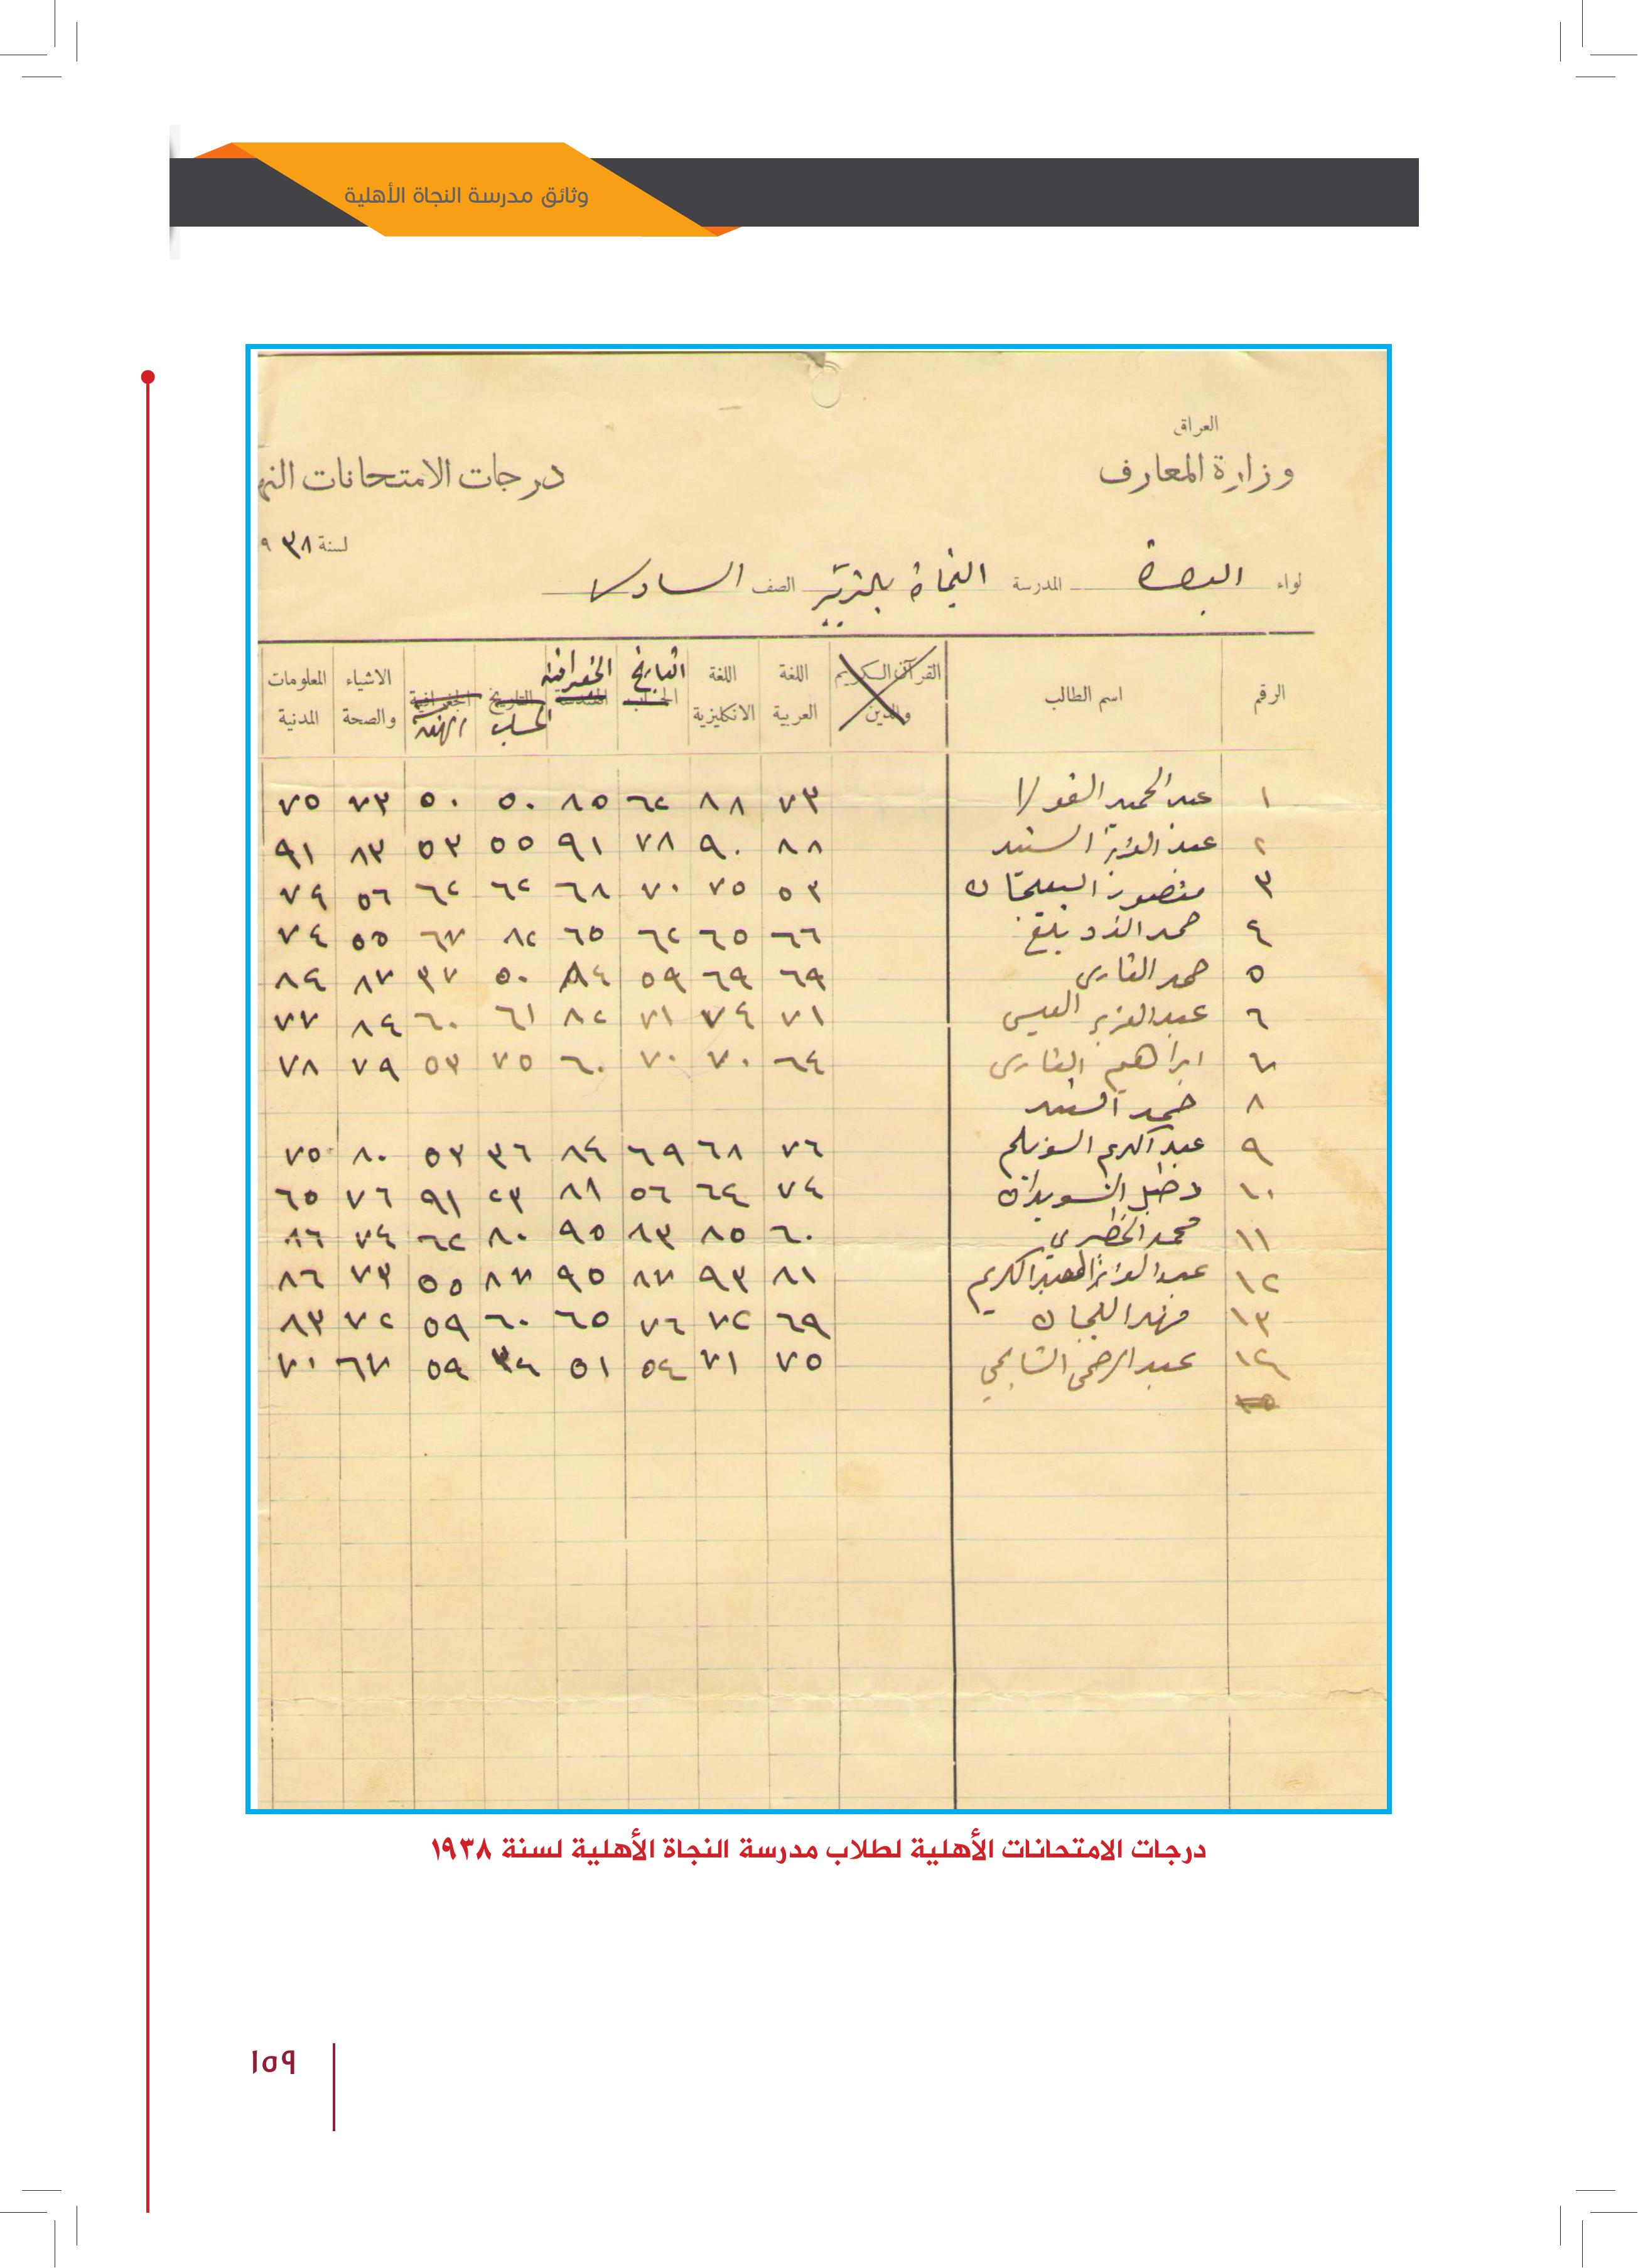 وثائق مدرسة النجاة الأهلية
العراق
وزارة المعارف درجات الامتحانات النه
لسنة ٩٣٨
لواء البصرة المدرسة النجاة بالزبير الصف السادس
الرقم اسم الطالب القرآن الكريم والدين اللغة العربية اللغة الانكليزية الحساب التاريخ الهندسة الجغرافية التاريخ الحساب الجغرافية الهندسة الاشياء والصحة المعلومات المدنية
١ عبد الحميد ٧٣ ٨٨ ٦٢ ٨٥ ٥٠ ٥٠ ٧٣ ٧٥
٢ عبد العزيز السند ٨٨ ٩٠ ٧٨ ٩١ ٥٥ ٥٣ ٨٣ ٩١
٣ منصور ٥٣ ٧٥ ٧٠ ٦٨ ٦٢ ٦٢ ٥٦ ٧٤
٤ حمد ٦٦ ٦٥ ٦٢ ٦٥ ٨٢ ٦٧ ٥٥ ٧٤
٥ حمد القارى ٦٩ ٦٩ ٥٩ ٨٤ ٥٠ ٣٧ ٨٧ ٨٤
٦ عبد العزيز العيسى ٧١ ٧٤ ٧١ ٨٢ ٦١ ٦٠ ٨٤ ٧٧
٧ ابراهيم القارى ٦٤ ٧٠ ٧٠ ٦٠ ٧٥ ٥٣ ٧٩ ٧٨
٨ حمد السند
٩ عبد الكريم السويلم ٧٦ ٦٨ ٦٩ ٨٤ ٣٦ ٥٣ ٨٠ ٧٥
١٠ دخيل السويدان ٧٤ ٦٤ ٥٦ ٨٨ ٢٣ ٩١ ٧٦ ٦٥
١١ محمد الخضيري ٦٠ ٨٥ ٨٣ ٩٥ ٨٠ ٦٢ ٧٤ ٨٦
١٢ عبد العزيز العبد الكريم ٨١ ٩٣ ٨٧ ٩٥ ٨٧ ٥٥ ٧٣ ٨٦
١٣ فهد اللجان ٦٩ ٧٢ ٧٦ ٦٥ ٦٠ ٥٩ ٧٢ ٨٣
١٤ عبد الرحمن ٧٥ ٧١ ٥٤ ٥١ ٣٤ ٥٩ ٦٧ ٧٠
١٥
درجات الامتحانات الأهلية لطلاب مدرسة النجاة الأهلية لسنة ١٩٣٨
١٥٩